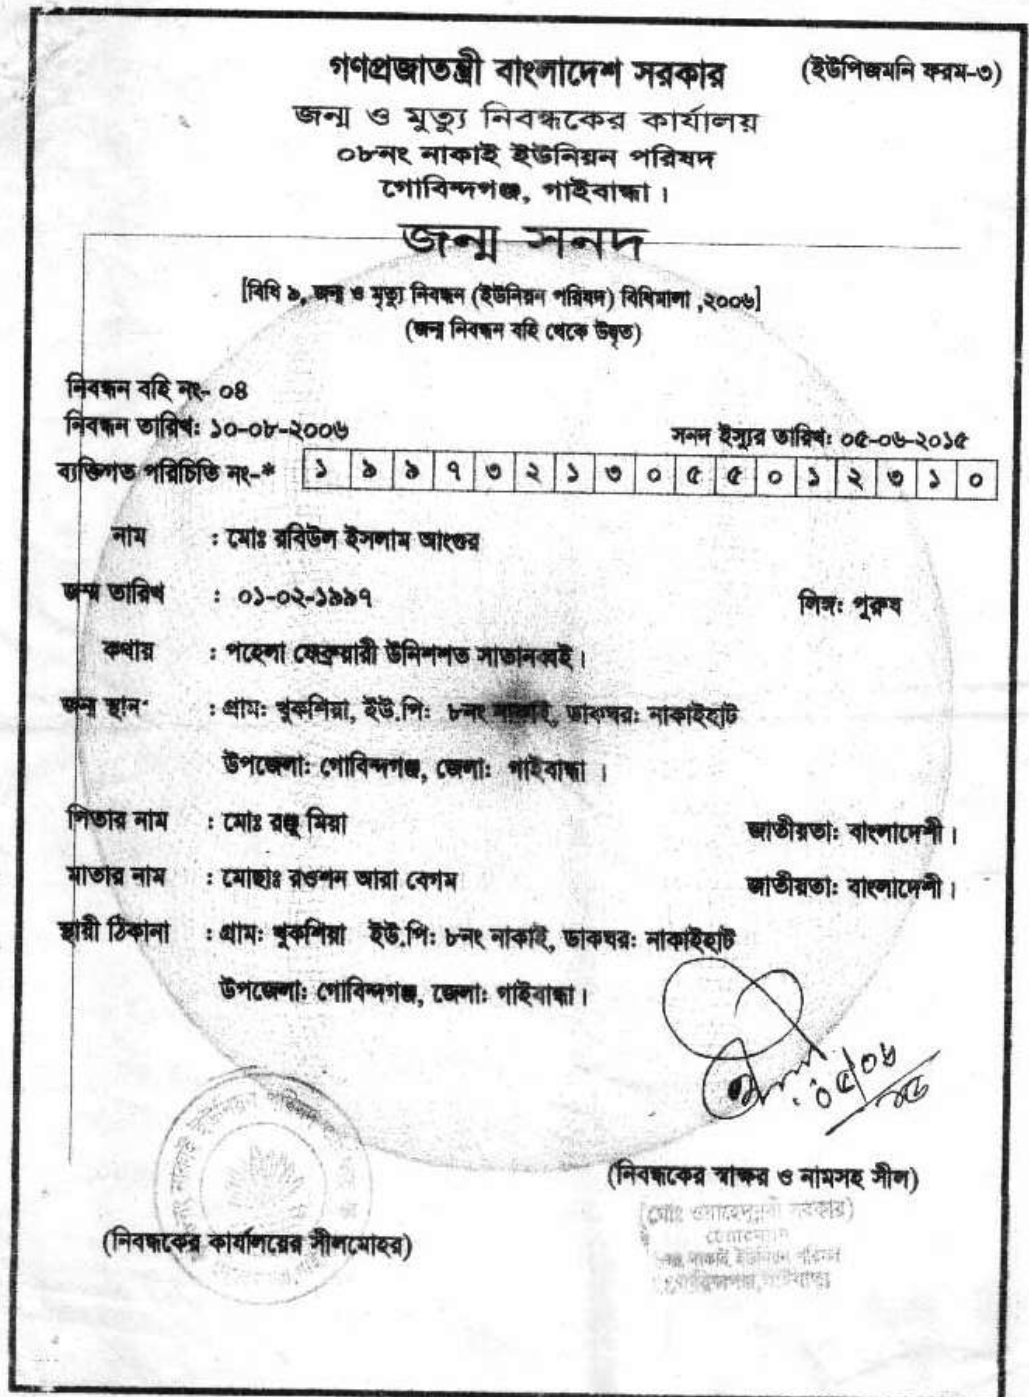 গণপ্রজাতন্ত্রী বাংলাদেশ সরকার (ইউপিজমনি ফরম-৩)
জন্ম ও মুত্যু নিবন্ধকের কার্যালয়
০৮নং নাকাই ইউনিয়ন পরিষদ
গোবিন্দগঞ্জ, গাইবান্ধা।
জন্ম সনদ
[বিধি ৯, জন্ম ও মৃত্যু নিবন্ধন (ইউনিয়ন পরিষদ) বিধিমালা ,২০০৬]
(জন্ম নিবন্ধন বহি থেকে উদ্বৃত)
নিবন্ধন বহি নং- ০৪
নিবন্ধন তারিখ: ১০-০৮-২০০৬ সনদ ইস্যুর তারিখ: ০৫-০৬-২০১৫
ব্যক্তিগত পরিচিতি নং-* ১ ৯ ৯ ৭ ৩ ২ ১ ৩ ০ ৫ ৫ ০ ১ ২ ৩ ১ ০
নাম : মোঃ রবিউল ইসলাম আংগুর
জন্ম তারিখ : ০১-০২-১৯৯৭ লিঙ্গ: পুরুষ
কথায় : পহেলা ফেব্রুয়ারী উনিশশত সাতানব্বই।
জন্ম স্থান : গ্রাম: খুকশিয়া, ইউ.পি: ৮নং নাকাই, ডাকঘর: নাকাইহাট
উপজেলা: গোবিন্দগঞ্জ, জেলা: গাইবান্ধা ।
পিতার নাম : মোঃ রঞ্জু মিয়া জাতীয়তা: বাংলাদেশী।
মাতার নাম : মোছাঃ রওশন আরা বেগম জাতীয়তা: বাংলাদেশী।
স্থায়ী ঠিকানা : গ্রাম: খুকশিয়া ইউ.পি: ৮নং নাকাই, ডাকঘর: নাকাইহাট
উপজেলা: গোবিন্দগঞ্জ, জেলা: গাইবান্ধা।
(নিবন্ধকের স্বাক্ষর ও নামসহ সীল)
চেয়ারম্যান
নাকাই ইউনিয়ন পরিষদ
গোবিন্দগঞ্জ, গাইবান্ধা
(নিবন্ধকের কার্যালয়ের সীলমোহর)